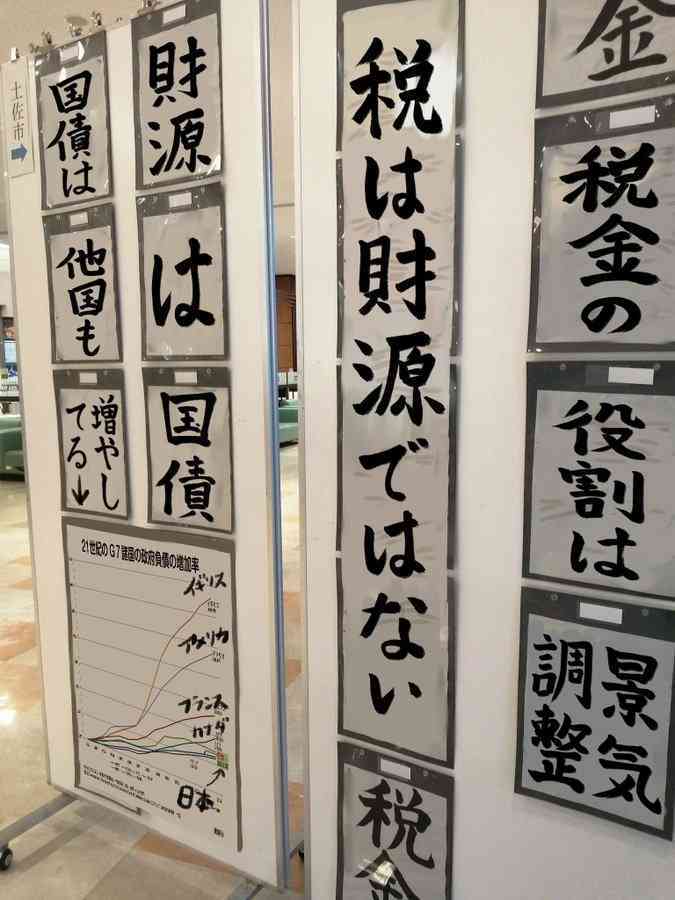 金
税金の
役割は
景気
調整
税は財源ではない
税金
財源
は
国債
国債は
他国も
増やし
てる↓
21世紀のG7諸国の政府負債の増加率
イギリス
アメリカ
フランス
カナダ
日本
土佐市